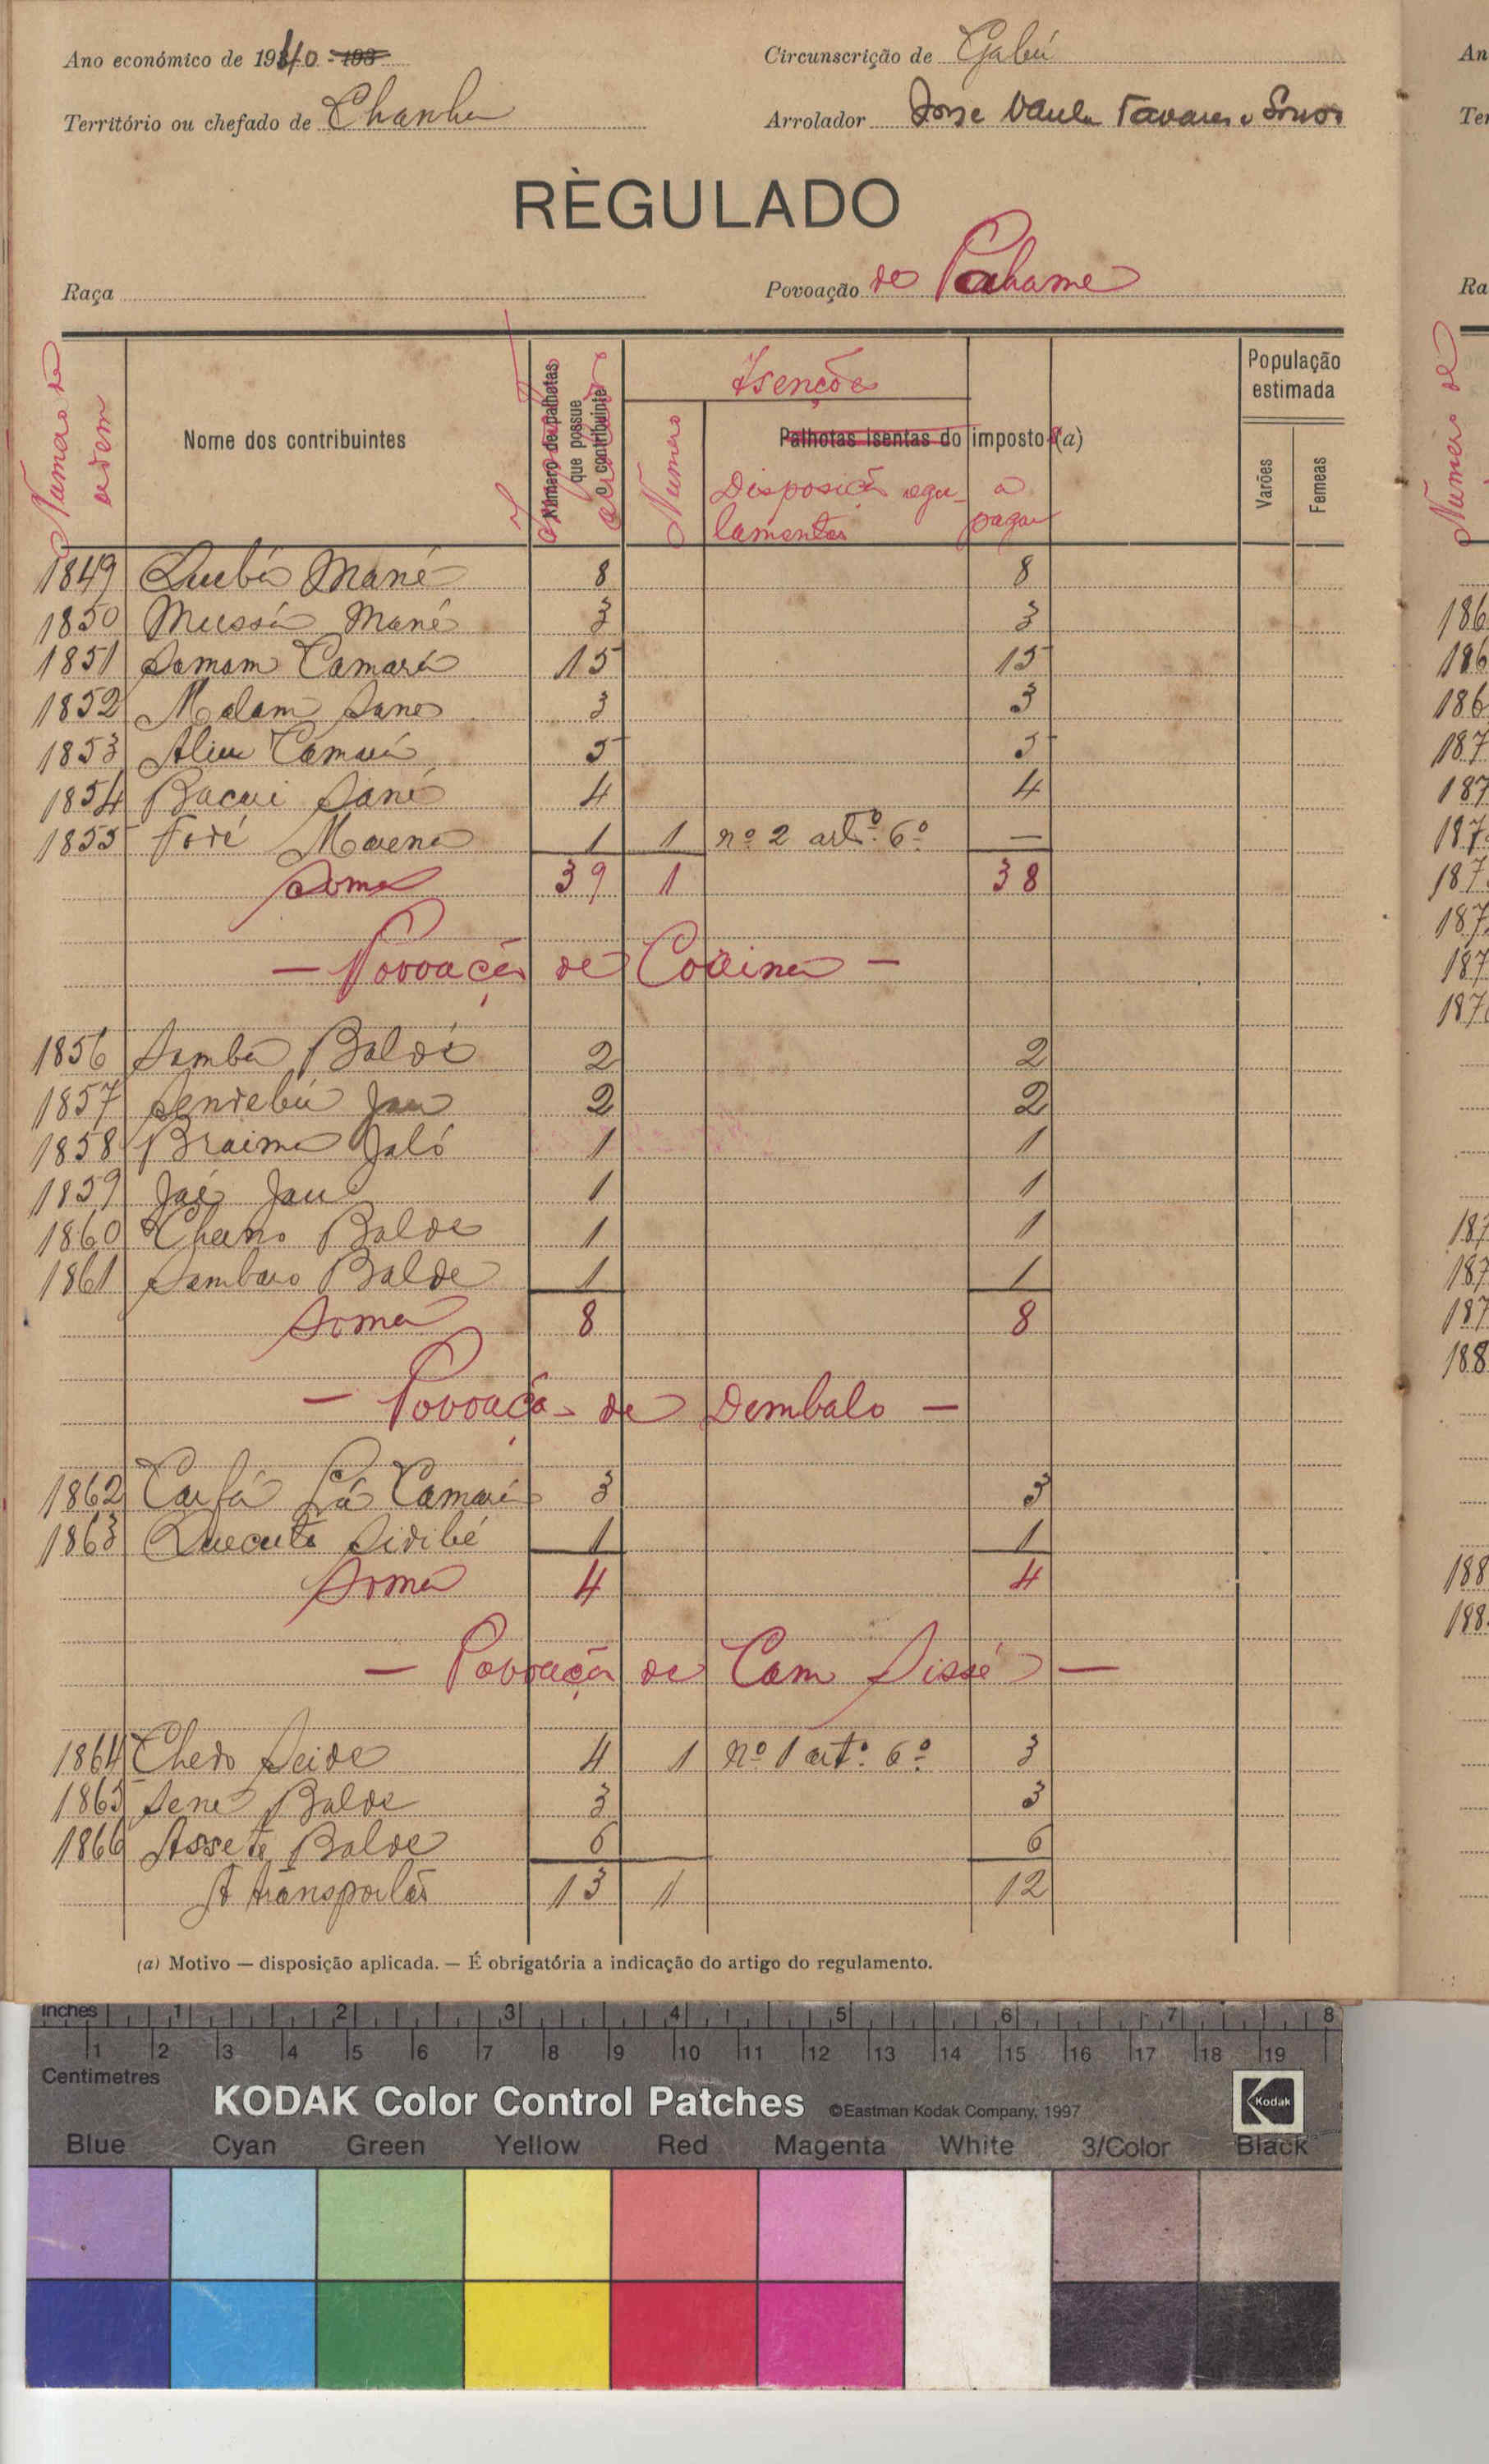 Ano económico de 1940 - 193
Circunscrição de Gabú
Território ou chefado de Chanha
Arrolador Tavares e Sousa
RÈGULADO
Raça
Povoação de Pahame
Numero de ordem
Nome dos contribuintes
Número de palhotas que possue o contribuinte
Isenções
Numero
Palhotas isentas do imposto (a)
Disposição regu-
lamentar
a pagar
População estimada
Varões
Femeas
1849 Quebá Mané 8 8
1850 Mussá Mané 3 3
1851 Camará 15 15
1852 Malam Sane 3 3
1853 Aliu Camará 5 5
1854 Bacari Sané 4 4
1855 Fodé 1 1 nº 2 artº 6º —
Soma 39 1 38
— Povoação de —
1856 Samba Baldé 2 2
1857 Jau 2 2
1858 Braima Jaló 1 1
1859 Jau 1 1
1860 Balde 1 1
1861 Sambaro Balde 1 1
Soma 8 8
— Povoação de Dembalo —
1862 Camará 3 3
1863 Quecuta Sidibé 1 1
Soma 4 4
— Povoação de Cam Sissé —
1864 Chedo Seide 4 1 nº 1 artº 6º 3
1865 Sene Balde 3 3
1866 Balde 6 6
A transportar 13 1 12
(a) Motivo — disposição aplicada. — É obrigatória a indicação do artigo do regulamento.
inches 1 2 3 4 5 6 7 8
1 2 3 4 5 6 7 8 9 10 11 12 13 14 15 16 17 18 19
Centimetres
KODAK Color Control Patches ©Eastman Kodak Company, 1997 Kodak
Blue Cyan Green Yellow Red Magenta White 3/Color Black